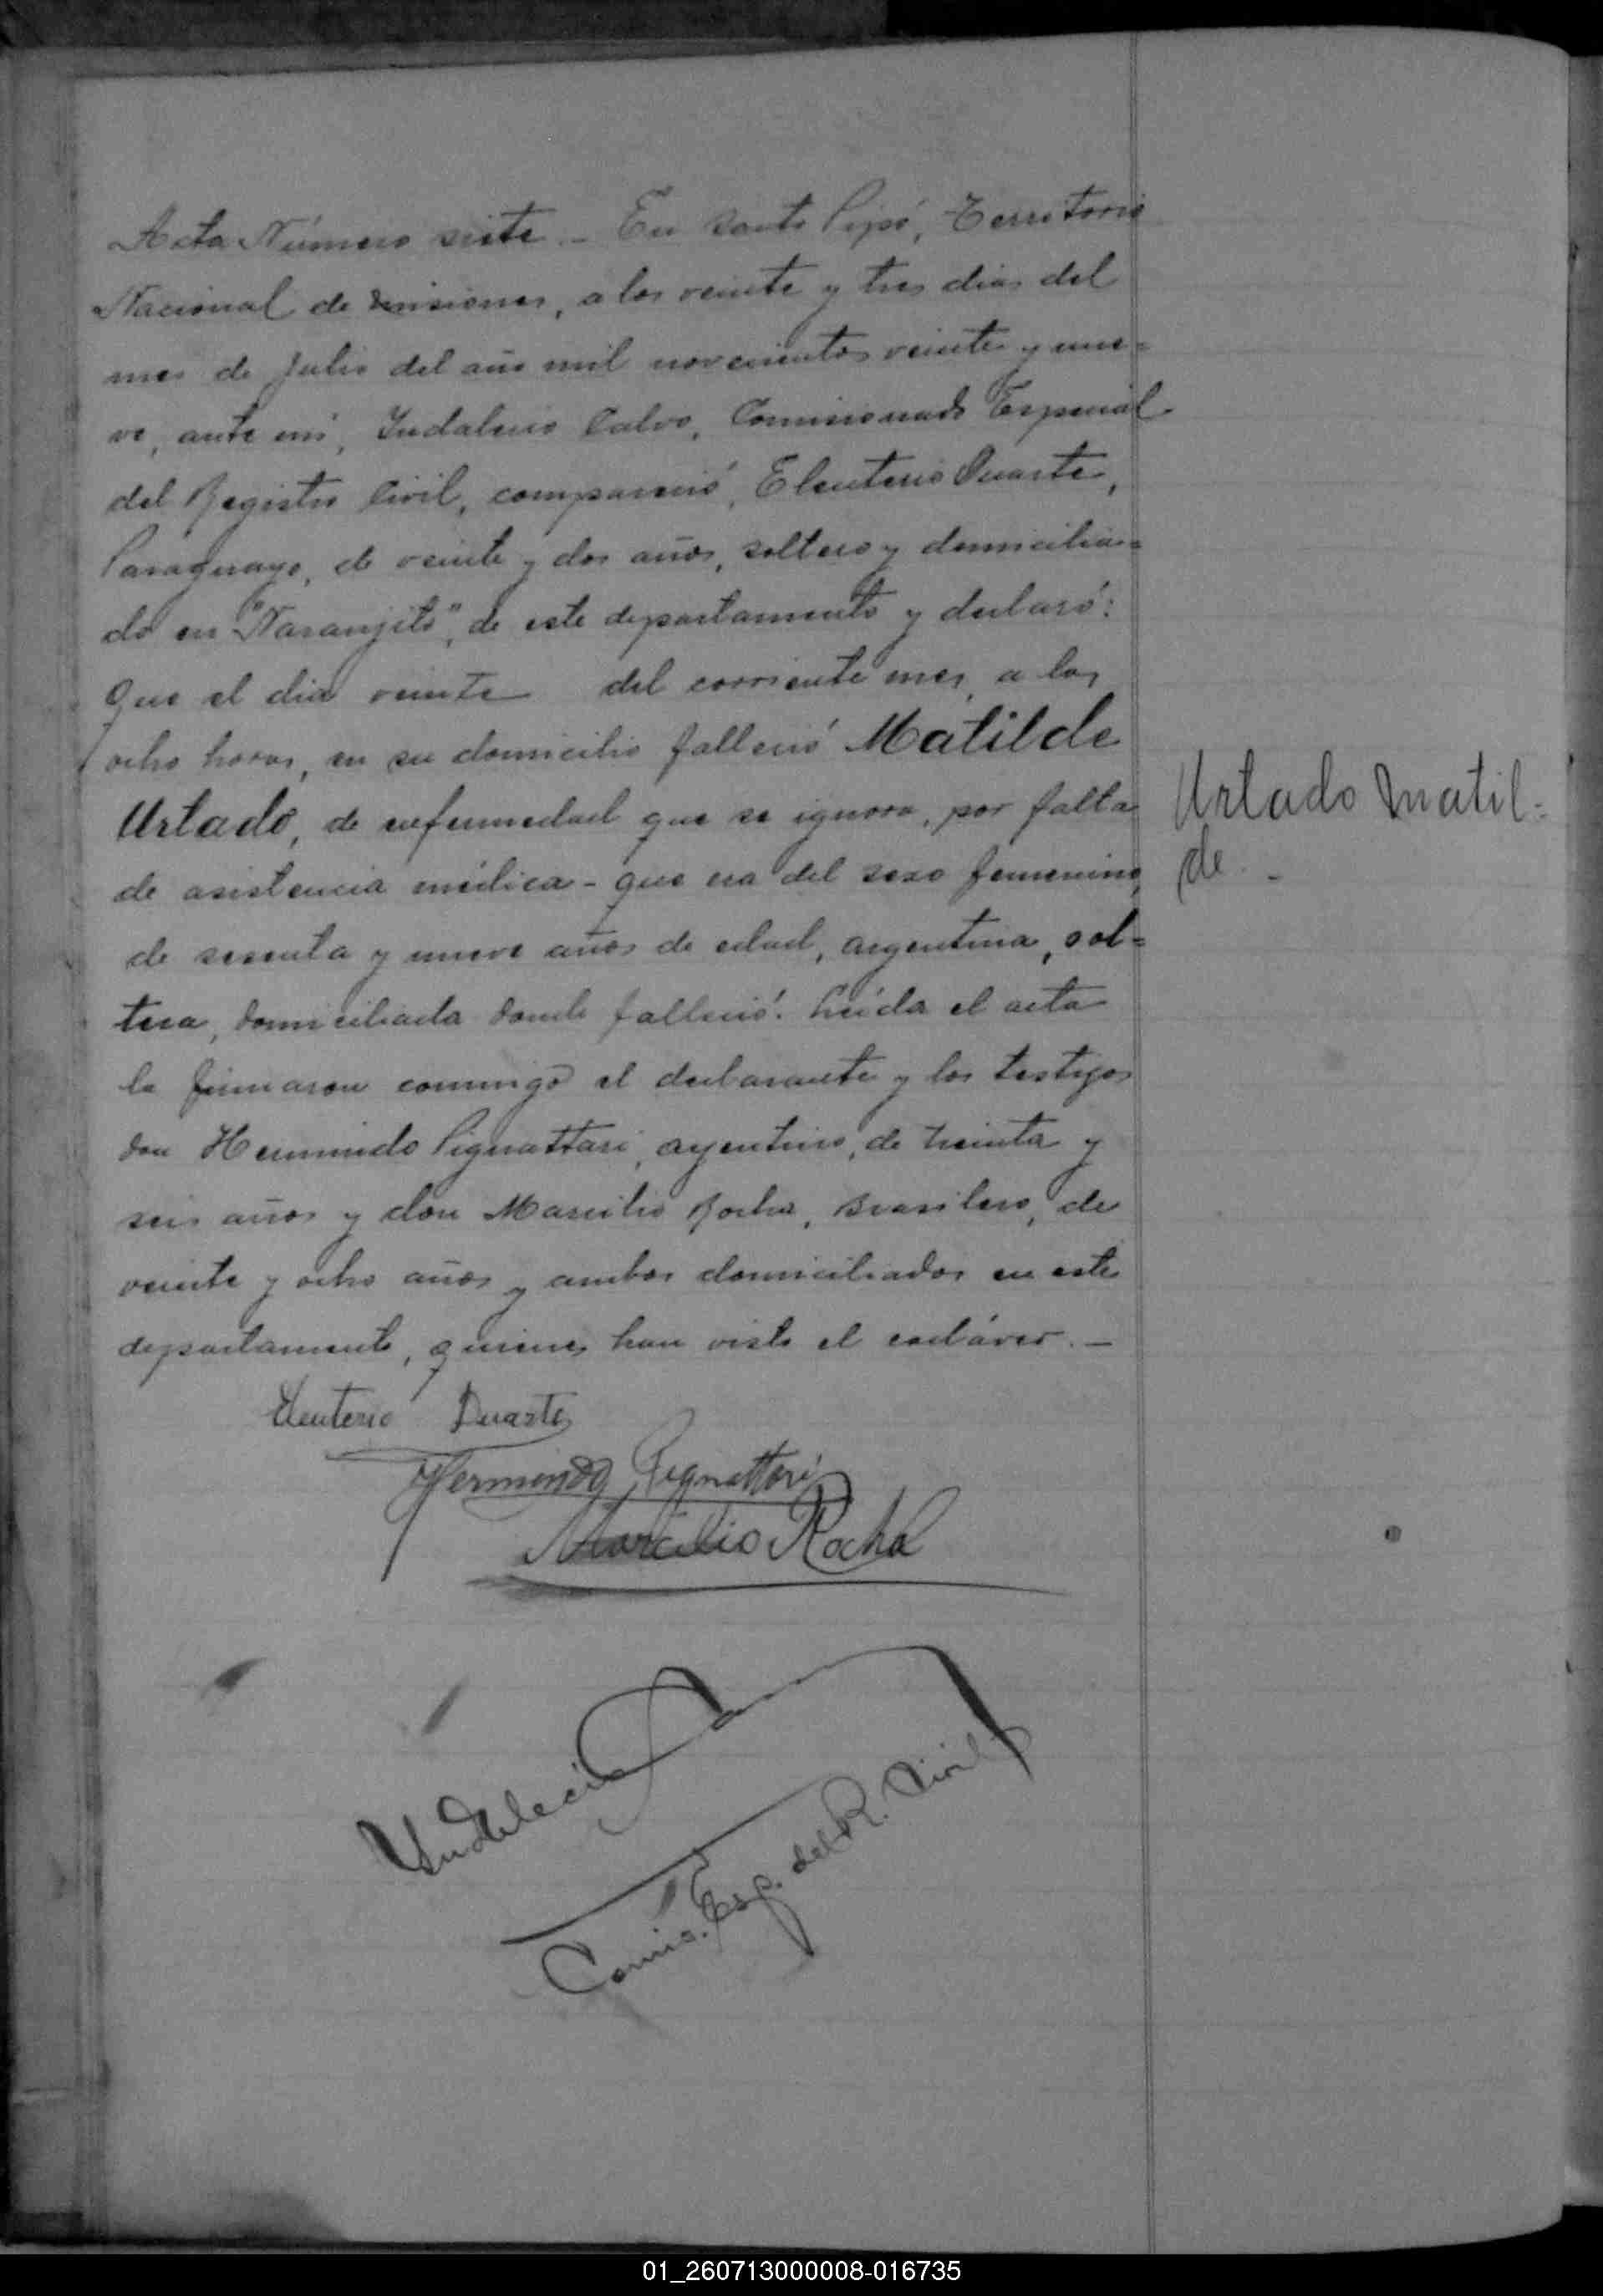 Acta Número siete. - En Santo Pipó, Territorio
Nacional de Misiones, a los veinte y tres dias del
mes de Julio del año mil novecientos veinte y nue=
ve, ante mí, Indalecio Calvo, Comisionado Especial
del Registro Civil, compareció, Eleuterio Duarte,
Paraguayo, de veinte y dos años, soltero y domicilia=
do en "Naranjito", de este departamento y declaró:
Que el dia veinte del corriente mes, a las
ocho horas, en su domicilio falleció Matilde
Urtado, de enfermedad que se ignora, por falta
de asistencia médica - que era del sexo femenino,
de sesenta y nueve años de edad, argentina, sol=
tera, domiciliada donde falleció. Leída el acta
la firmaron conmigo el declarante y los testigos
don Hermindo Pignattari, argentino, de treinta y
seis años y don Marcilio Rocha, Brasilero, de
veinte y ocho años y ambos domiciliados en este
departamento, quienes han visto el cadáver. -
Urtado Matil=
de. -
Eleuterio Duarte
Hermindo Pignattari
Marcilio Rocha
Indalecio
Comis. Esp. del R. Civil
01_260713000008-016735